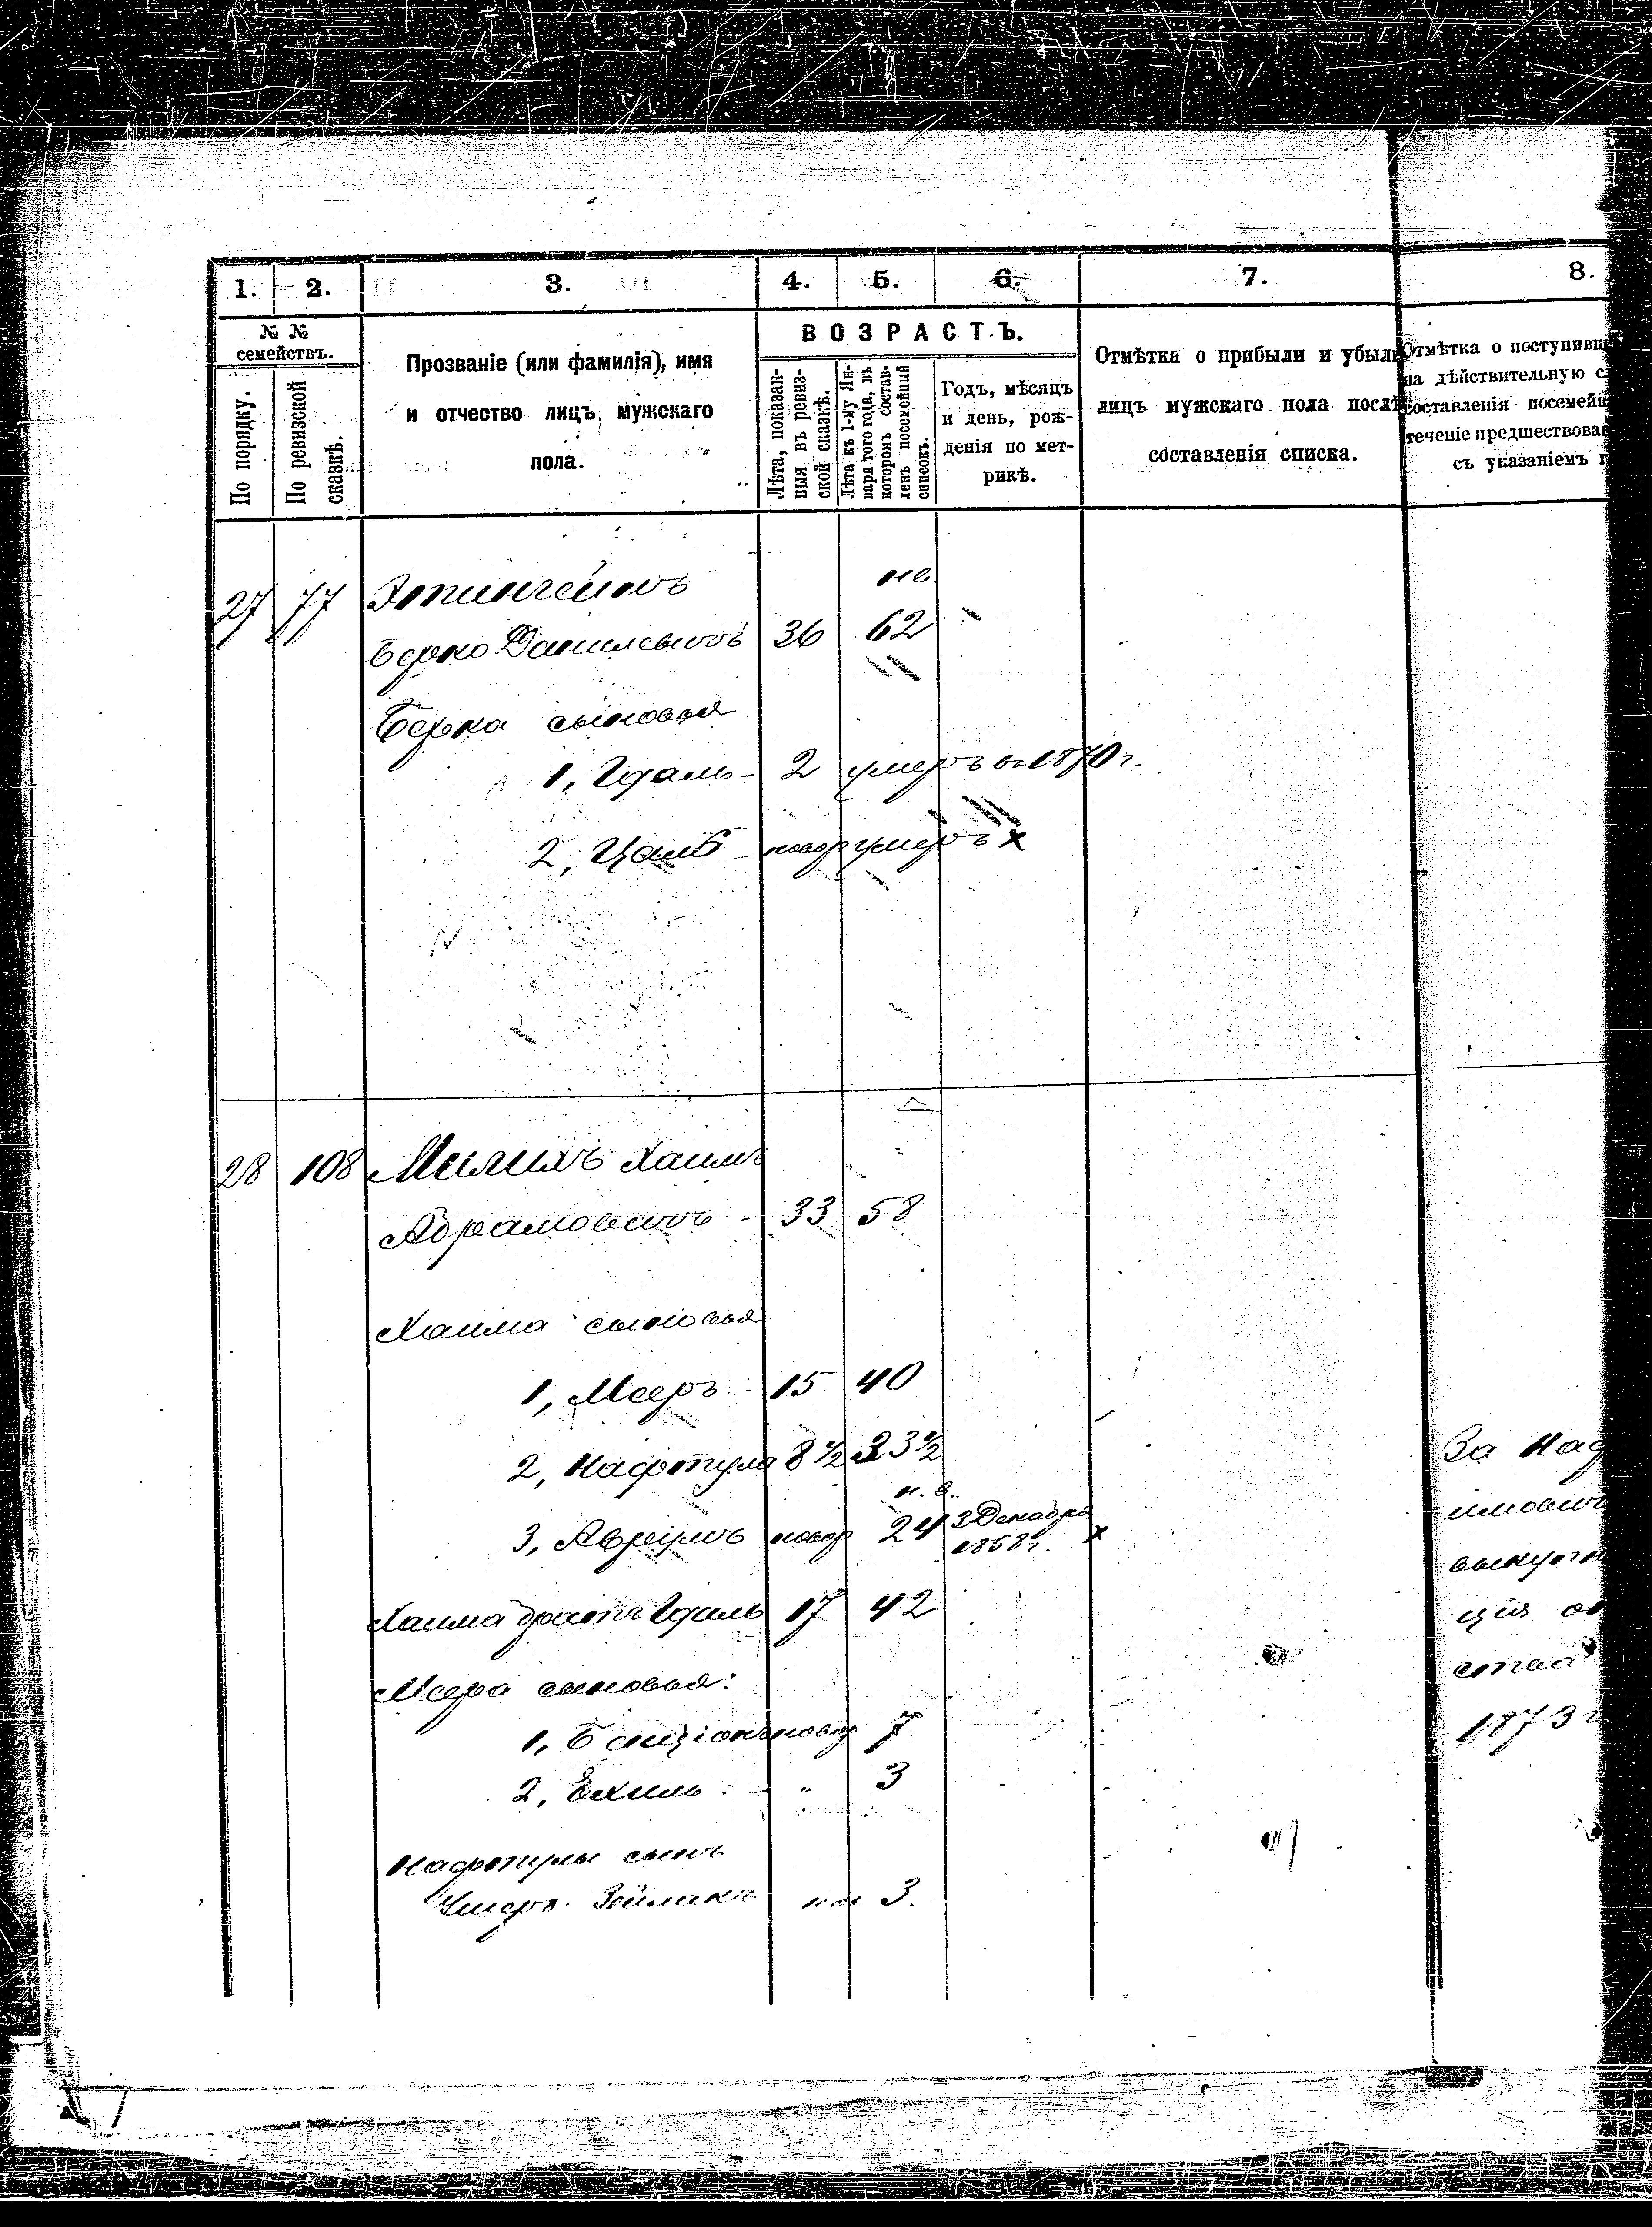 1. 2. 3. 4. 5. 6. 7. 8.
№ №
семействъ.
По порядку.
По ревизской
сказкѣ.
Прозваніе (или фамилія), имя
и отчество лицъ мужскаго
пола.
ВОЗРАСТЪ.
Лѣта, показан-
ныя въ ревиз-
ской сказкѣ.
Лѣта къ 1-му Ян-
варя того года, въ
которомъ состав-
ленъ посемейный
списокъ.
Годъ, мѣсяцъ
и день, рож-
денія по мет-
рикѣ.
Отмѣтка о прибыли и убыли
лицъ мужскаго пола послѣ
составленія списка.
Отмѣтка о поступивш
на дѣйствительную с
составленія посемей
теченіе предшествова
съ указаніемъ г
27 77
Берко 36 62
Берка сыновья
1, Гдаль - 2 умеръ въ 1870 г.
2, новор умеръ х
28 108 Милихъ Хаимъ
Абрамовичъ - 33 58
Хаима сыновья
1, Мееръ - 15 40
2, Нафтула 8 1/2 33 1/2
н. в.
3, Аврумъ новор 24 3 Декабря
1858 г. х
Хаима братъ Гдаль 17 42
Меера сыновья:
1, Бенціонъ новор 7
2, Ехиль - " 3
Нафтулы сынъ
Ушеръ Зейликъ 3.
За Наф
выкупн
ція
1873 г